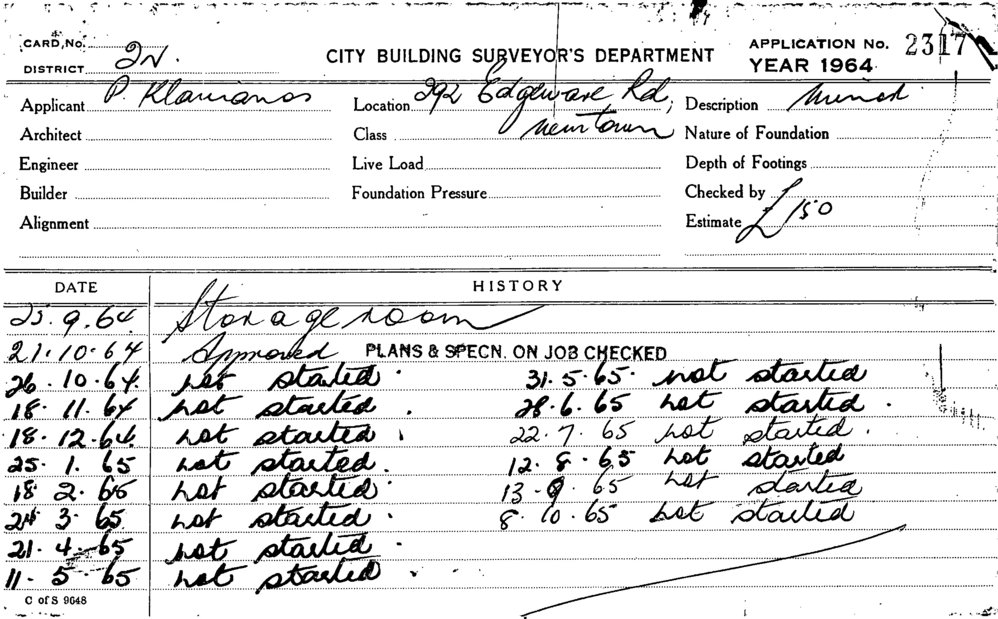 CARD, No.
DISTRICT 2N.
CITY BUILDING SURVEYOR'S DEPARTMENT
APPLICATION No. 2317
YEAR 1964
Applicant P. Location 292 Edgeware Rd, Description
Architect Class Newtown Nature of Foundation
Engineer Live Load Depth of Footings
Builder Foundation Pressure Checked by
Alignment Estimate £150
DATE HISTORY
23.9.64 Storage room
21.10.64 Approved PLANS & SPECN. ON JOB CHECKED
26.10.64. not started. 31.5.65. not started
18.11.64 not started. 28.6.65 not started.
18.12.64. not started. 22.7.65 not started.
25.1.65 not started. 12.8.65 not started
18.2.65 not started. 13.9.65 not started
24.3.65 not started. 8.10.65 not started
21.4.65 not started.
11.5.65 not started.
C of S 9648